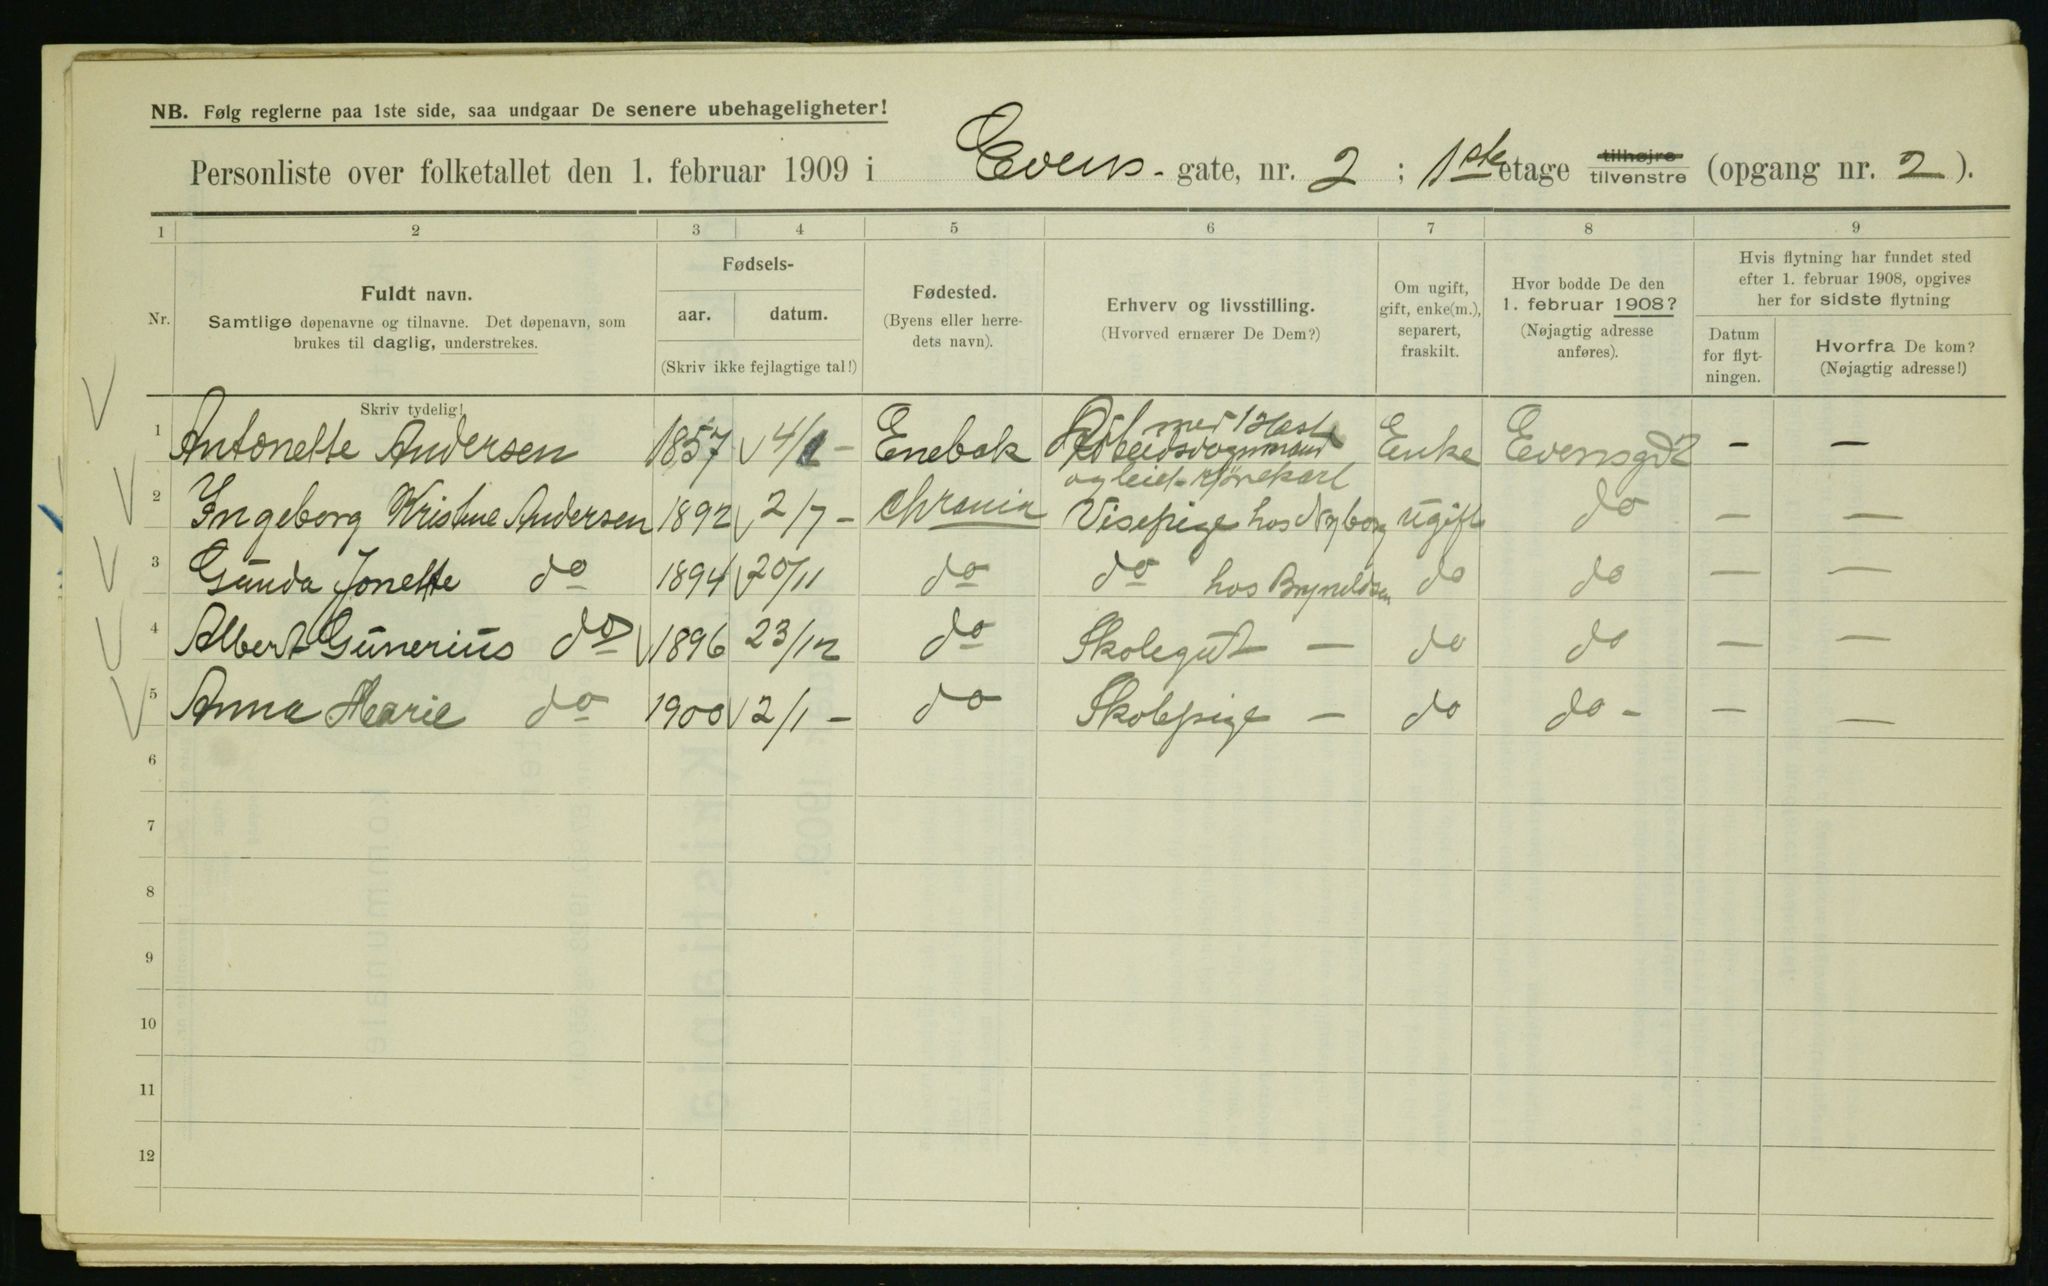 NB. Følg reglerne paa 1ste side, saa undgaar De senere ubehageligheter!
Personliste over folketallet den 1. februar 1909 i Evens - gate, nr. 2 ; 1ste etage tilhøjre tilvenstre (opgang nr. 2 ).
1 2 3 4 5 6 7 8 9
Nr.
Fuldt navn.
Samtlige døpenavne og tilnavne. Det døpenavn, som
brukes til daglig, understrekes.
Skriv tydelig!
Fødsels-
aar. datum.
(Skriv ikke fejlagtige tal!)
Fødested.
(Byens eller herre-
dets navn).
Erhverv og livsstilling.
(Hvorved ernærer De Dem?)
Om ugift,
gift, enke(m.),
separert,
fraskilt.
Hvor bodde De den
1. februar 1908?
(Nøjagtig adresse
anføres).
Hvis flytning har fundet sted
efter 1. februar 1908, opgives
her for sidste flytning
Datum
for flyt-
ningen.
Hvorfra De kom?
(Nøjagtig adresse!)
med 1 Hest
1 Antonette Andersen 1857 4/1 - Enebak Arbeidsvognmand Enke Evensgd 2 — —
og leiet Kjørekarl
2 Ingeborg Kristine Andersen 1892 2/7 - Chrania Visepige hos Nyborg ugift do — —
3 Gunda Jonette do 1894 20/11 do do hos Bryneldsen do do — —
4 Albert Gunerius do 1896 23/12 do Skolegut — do do — —
5 Anna Marie do 1900 2/1 - do Skolepige — do do - — —
6
7
8
9
10
11
12